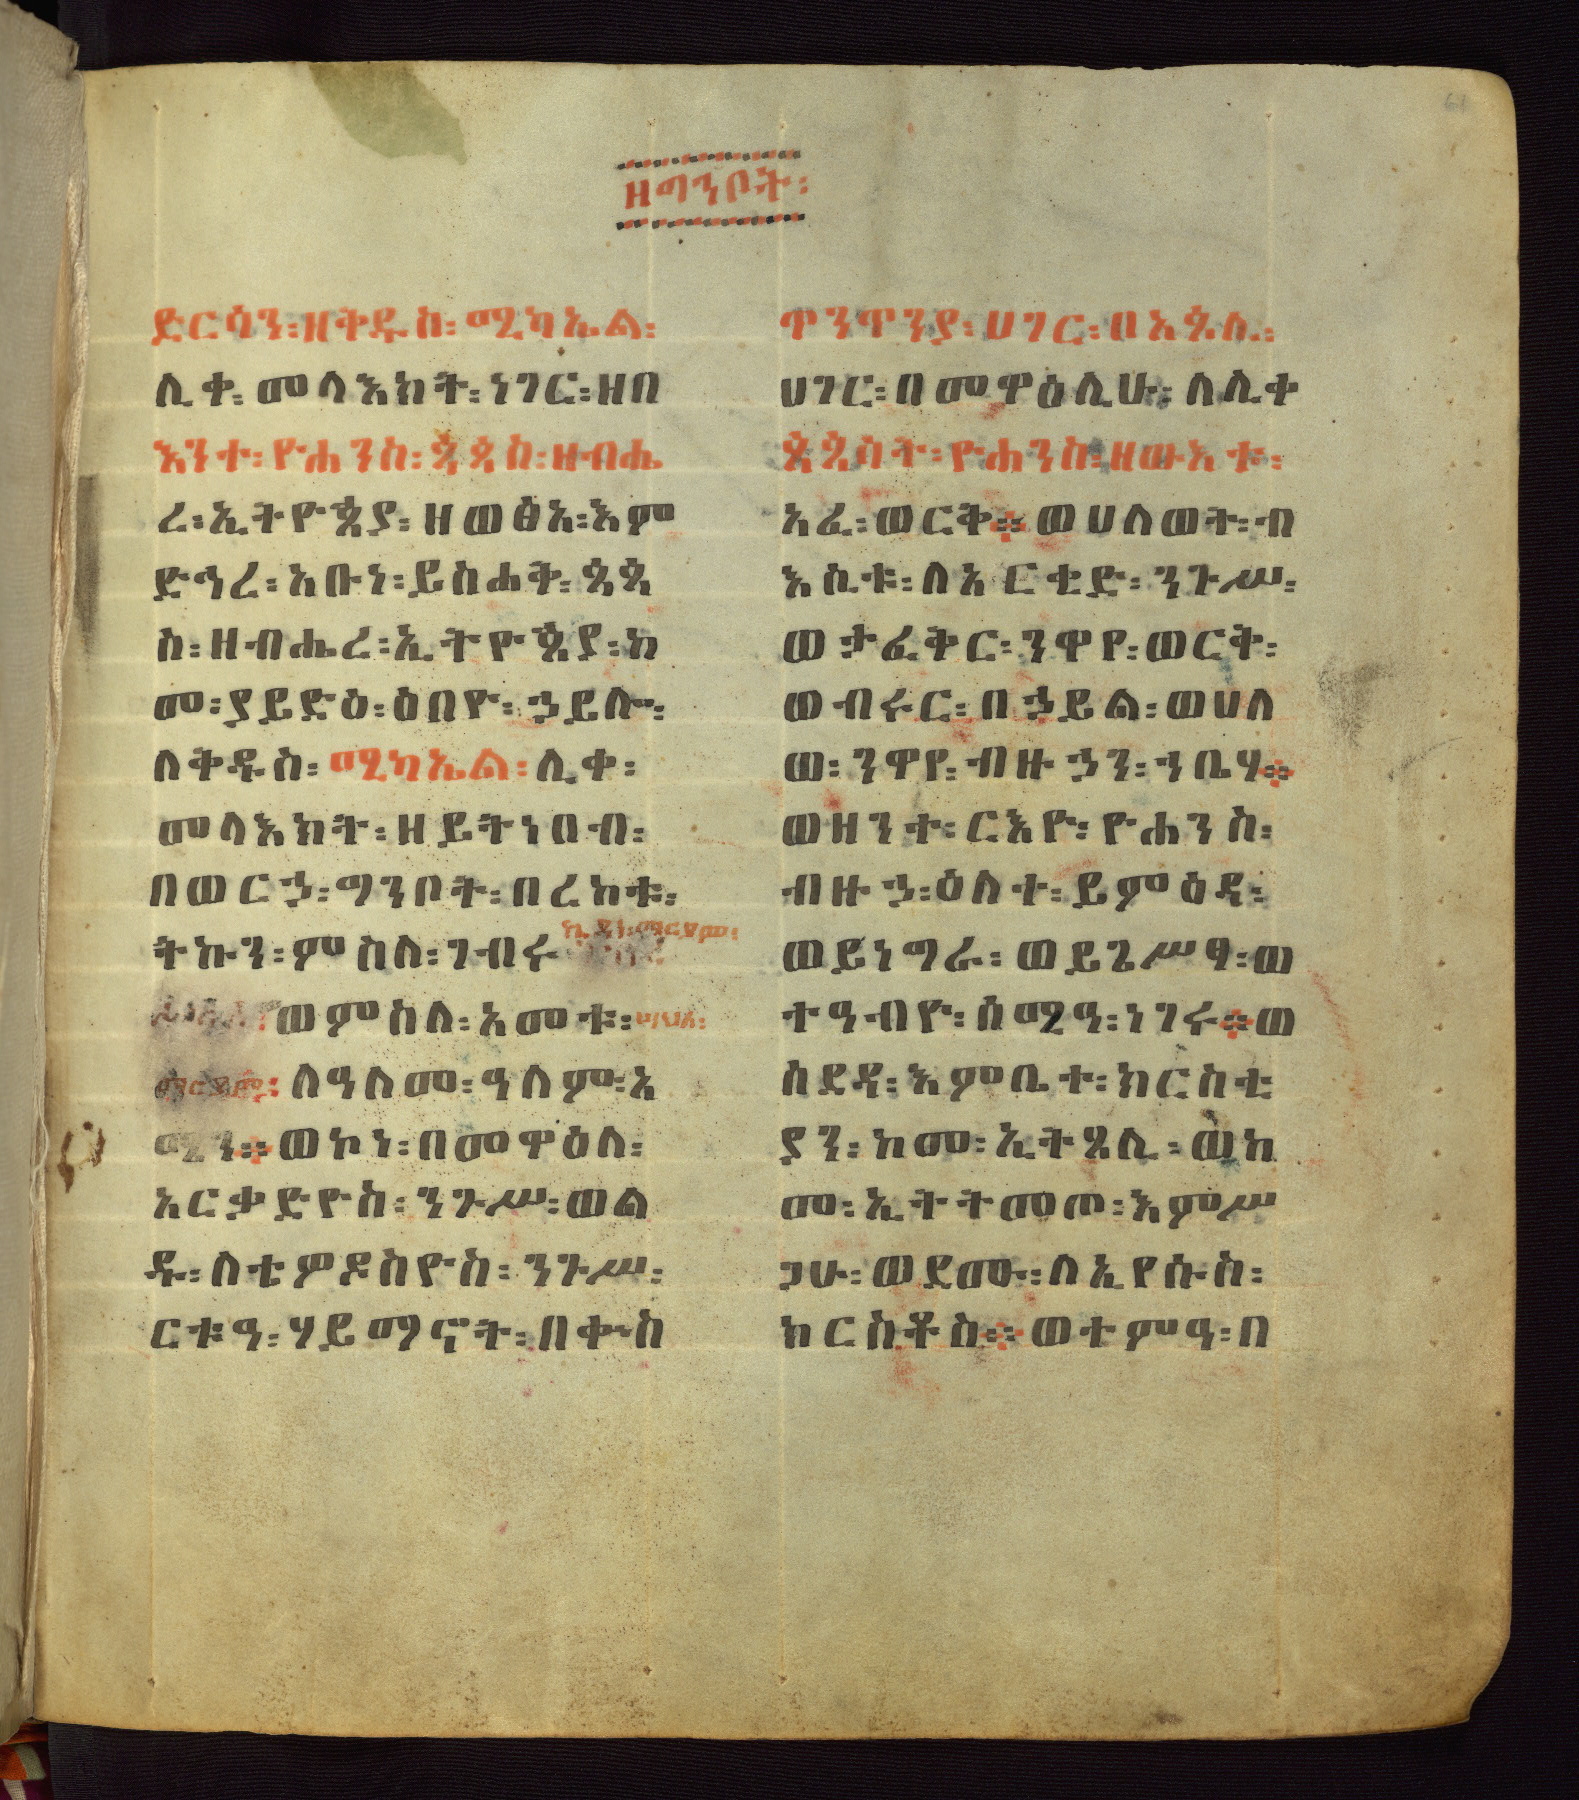 ዘግንቦት፡
ድርሳን፡ዘቅዱስ፡ሚካኤል፡
ሊቀ፡መላእክት፡ነገር፡ዘበ
እንተ፡ዮሐንስ፡ጳጳስ፡ዘብሔ
ረ፡ኢትዮጵያ፡ዘወፅአ፡እም
ድኅረ፡አቡነ፡ይስሐቅ፡ጳጳ
ስ፡ዘብሔረ፡ኢትዮጵያ፡ከ
መ፡ያይድዕ፡ዕበዮ፡ኃይሉ፡
ለቅዱስ፡ሚካኤል፡ሊቀ፡
መላእክት፡ዘይትነበብ፡
በወርኃ፡ግንቦት፡በረከቱ፡
ትኩን፡ምስለ፡ገብሩ
ወምስለ፡አመቱ፡
ለዓለመ፡ዓለም፡አ
ሜን፨ወኮነ፡በመዋዕለ፡
አርቃድዮስ፡ንጉሥ፡ወል
ዱ፡ለቴዎዶስዮስ፡ንጉሥ፡
ርቱዓ፡ሃይማኖት፡በቍስ
ጥንጥንያ፡ሀገር፡በአጼሉ፡
ሀገር፡በመዋዕሊሁ፡ለሊቀ
ጳጳሳት፡ዮሐንስ፡ዘውእቱ፡
አፈ፡ወርቅ፨ወሀለወት፡ብ
እሲቱ፡ለአርቴድ፡ንጉሥ፡
ወታፈቅር፡ንዋየ፡ወርቅ፡
ወብሩር፡በኃይል፡ወሀለ
ወ፡ንዋየ፡ብዙኃን፡ኀቤሃ፨
ወዘንተ፡ርእዮ፡ዮሐንስ፡
ብዙኃ፡ዕለተ፡ይምዕዳ፡
ወይነግራ፡ወይጌሥፃ፡ወ
ተዓብዮ፡ሰሚዓ፡ነገሩ፨ወ
ሰደዳ፡እምቤተ፡ክርስቲ
ያን፡ከመ፡ኢትጸሊ፡ወከ
መ፡ኢትትመጦ፡እምሥ
ጋሁ፡ወደሙ፡ለኢየሱስ፡
ክርስቶስ፨ወተምዓ፡በ